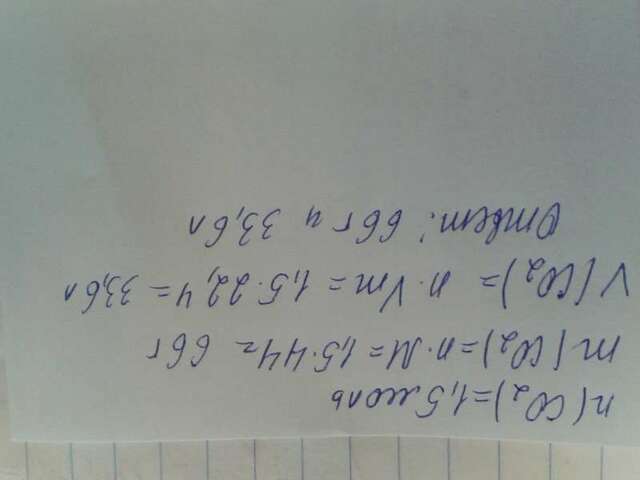 n(CO₂)=1,5моль
m(CO₂)=n·M=1,5·44= 66 г
V(CO₂)= n·Vm = 1,5·22,4 = 33,6 л
Ответ: 66 г и 33,6 л